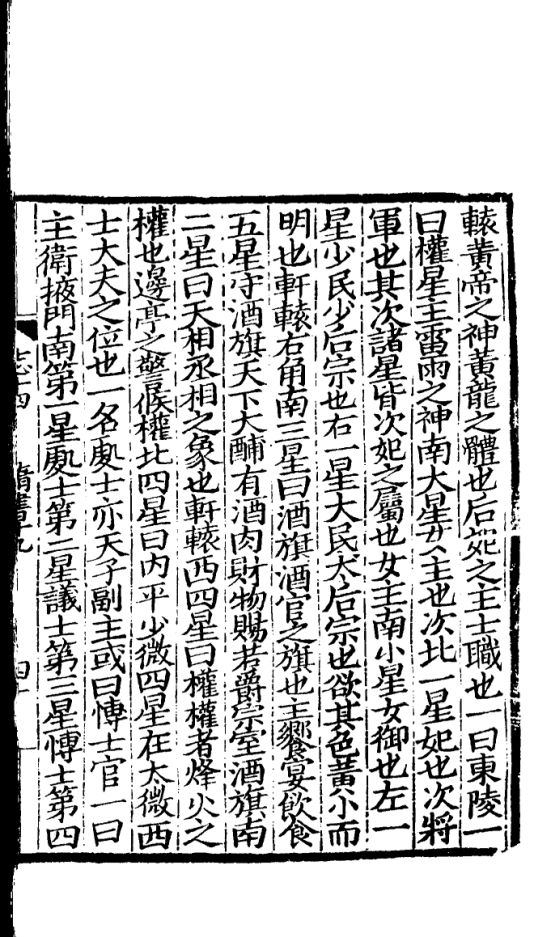 轅黃帝之神黃龍之體也后妃之主士職也一曰東陵一
曰權星主雷雨之神南大星女主也次北一星妃也次將
軍也其次諸星皆次妃之屬也女主南小星女御也左一
星少民少后宗也右一星大民太后宗也欲其色黃小而
明也軒轅右角南三星曰酒旗酒官之旗也主饗宴飲食
五星守酒旗天下大酺有酒肉財物賜若爵宗室酒旗南
二星曰天相丞相之象也軒轅西四星曰權權者烽火之
權也邊亭之警候權北四星曰内平少微四星在太微西
士大夫之位也一名處士亦天子副主或曰博士官一曰
主衛掖門南第一星處士第二星議士第三星博士第四
志十四 隋書九